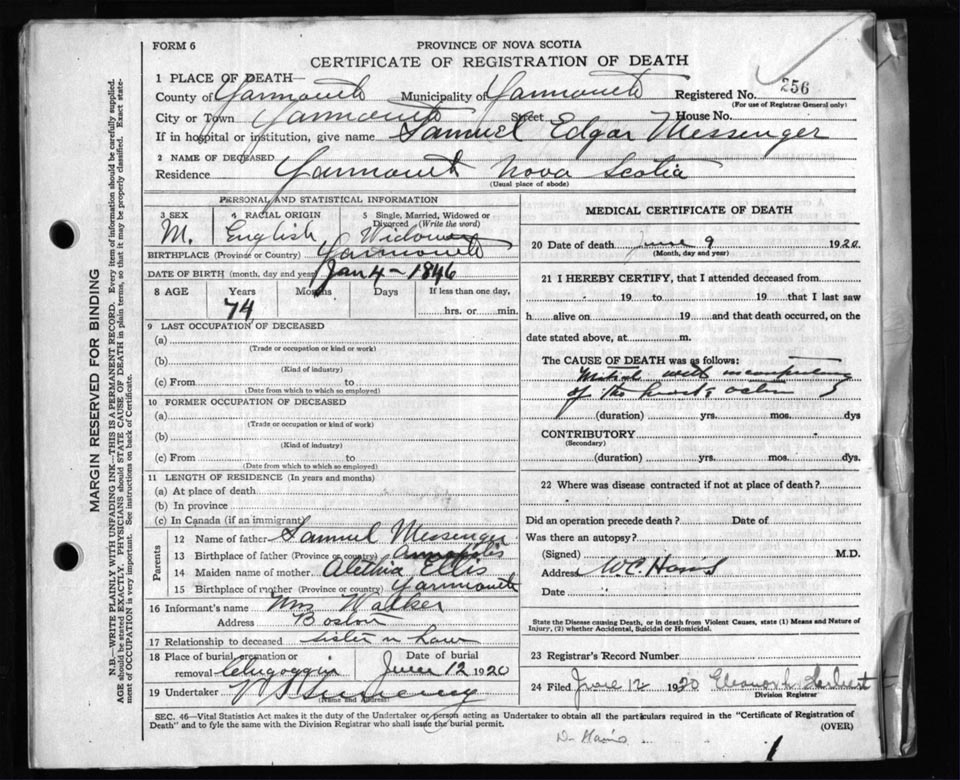 FORM 6
PROVINCE OF NOVA SCOTIA
CERTIFICATE OF REGISTRATION OF DEATH
1 PLACE OF DEATH—
County of Yarmouth Municipality of Yarmouth Registered No. 256
(For use of Registrar General only)
City or Town Yarmouth Street House No.
If in hospital or institution, give name Samuel Edgar Messenger
2 NAME OF DECEASED
Residence Yarmouth Nova Scotia
(Usual place of abode)
PERSONAL AND STATISTICAL INFORMATION
3 SEX 4 RACIAL ORIGIN 5 Single, Married, Widowed or Divorced (Write the word)
M. English Widower
BIRTHPLACE (Province or Country) Yarmouth
DATE OF BIRTH (month, day and year) Jan 4 - 1846
8 AGE Years Months Days If less than one day,
74 hrs. or min.
9 LAST OCCUPATION OF DECEASED
(a)
(Trade or occupation or kind or work)
(b)
(Kind of industry)
(c) From to
(Date from which to which so employed)
10 FORMER OCCUPATION OF DECEASED
(a)
(Trade or occupation or kind of work)
(b)
(Kind of industry)
(c) From to
(Date from which to which so employed)
11 LENGTH OF RESIDENCE (In years and months)
(a) At place of death
(b) In province
(c) In Canada (if an immigrant)
Parents
12 Name of father Samuel Messenger
13 Birthplace of father (Province or country) Annapolis
14 Maiden name of mother Alethia Ellis
15 Birthplace of mother (Province or country) Yarmouth
16 Informant's name Mrs Walker
Address Boston
17 Relationship to deceased sister n Law
18 Place of burial, cremation or removal Chegoggin Date of burial June 12 1920
19 Undertaker
(Name and Address)
MEDICAL CERTIFICATE OF DEATH
20 Date of death June 9 1920.
(Month, day and year)
21 I HEREBY CERTIFY, that I attended deceased from
19 to 19 that I last saw
h alive on 19 and that death occurred, on
date stated above, at m.
The CAUSE OF DEATH was as follows:
Mitral with
of the heart's action
(duration) yrs. mos. dys
CONTRIBUTORY
(Secondary)
(duration) yrs. mos. dys.
22 Where was disease contracted if not at place of death?
Did an operation precede death? Date of
Was there an autopsy?
(Signed) M.D.
Address W.C. Harris
Date
State the Disease causing Death, or in death from Violent Causes, state (1) Means and Nature of
Injury, (2) whether Accidental, Suicidal or Homicidal.
23 Registrar's Record Number
24 Filed June 12 1920 Eleanor H. Herbert
Division Registrar
SEC. 46—Vital Statistics Act makes it the duty of the Undertaker or person acting as Undertaker to obtain all the particulars required in the "Certificate of Registration of
Death" and to fyle the same with the Division Registrar who shall issue the burial permit.
(OVER)
Dr Harris
1
MARGIN RESERVED FOR BINDING
N.B.—WRITE PLAINLY WITH UNFADING INK—THIS IS A PERMANENT RECORD. Every item of information should be carefully supplied.
AGE should be stated EXACTLY. PHYSICIANS should STATE CAUSE OF DEATH in plain terms, so that it may be properly classified. Exact statement
of OCCUPATION is very important. See instructions on back of Certificate.